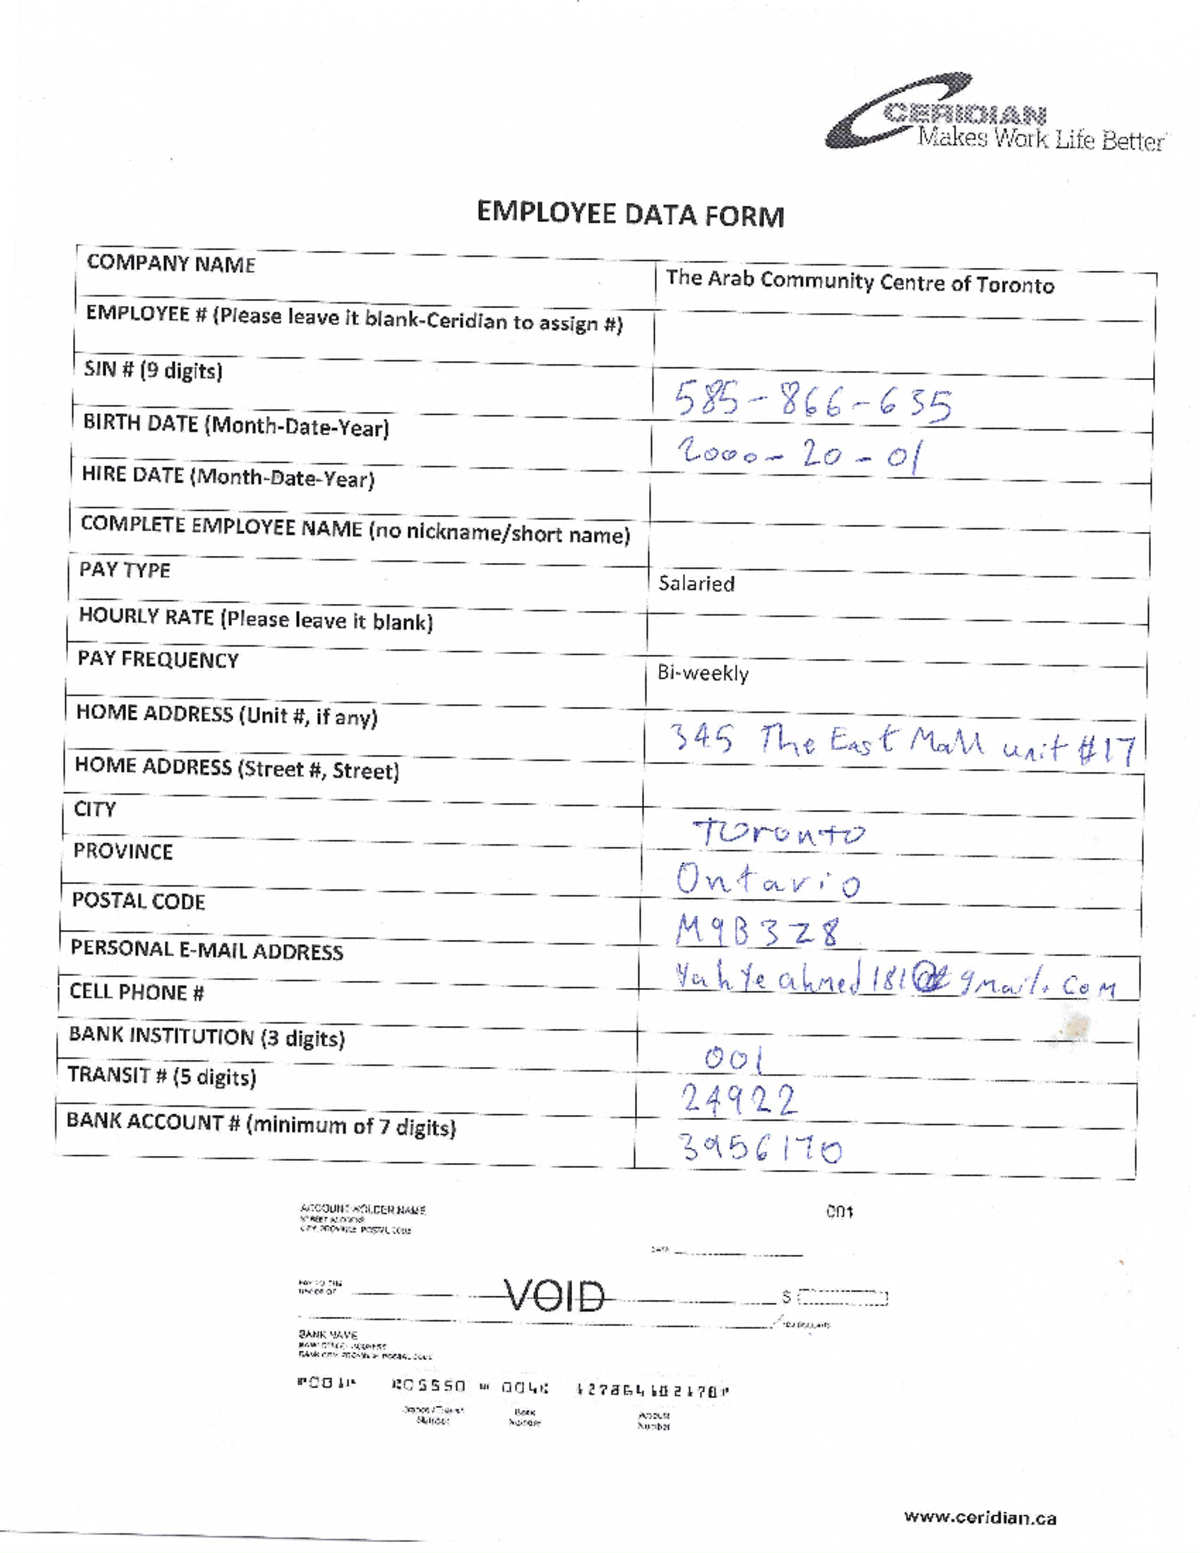 CERIDIAN
Makes Work Life Better
EMPLOYEE DATA FORM
COMPANY NAME
The Arab Community Centre of Toronto
EMPLOYEE # (Please leave it blank-Ceridian to assign #)
SIN # (9 digits)
585-866-635
BIRTH DATE (Month-Date-Year)
2000-20-01
HIRE DATE (Month-Date-Year)
COMPLETE EMPLOYEE NAME (no nickname/short name)
PAY TYPE
Salaried
HOURLY RATE (Please leave it blank)
PAY FREQUENCY
Bi-weekly
HOME ADDRESS (Unit #, if any)
345 The East Mall unit #17
HOME ADDRESS (Street #, Street)
CITY
Toronto
PROVINCE
Ontario
POSTAL CODE
M9B3Z8
PERSONAL E-MAIL ADDRESS
Yahyeahmed181@gmail.com
CELL PHONE #
BANK INSTITUTION (3 digits)
001
TRANSIT # (5 digits)
24922
BANK ACCOUNT # (minimum of 7 digits)
3956170
ACCOUNT HOLDER NAME
STREET ADDRESS
CITY, PROVINCE POSTAL CODE
001
DATE
PAY TO THE
ORDER OF
VOID
$
BANK NAME
BANK STREET ADDRESS
BANK CITY, PROVINCE POSTAL CODE
Branch/Transit
Number
Bank
Number
Account
Number
www.ceridian.ca